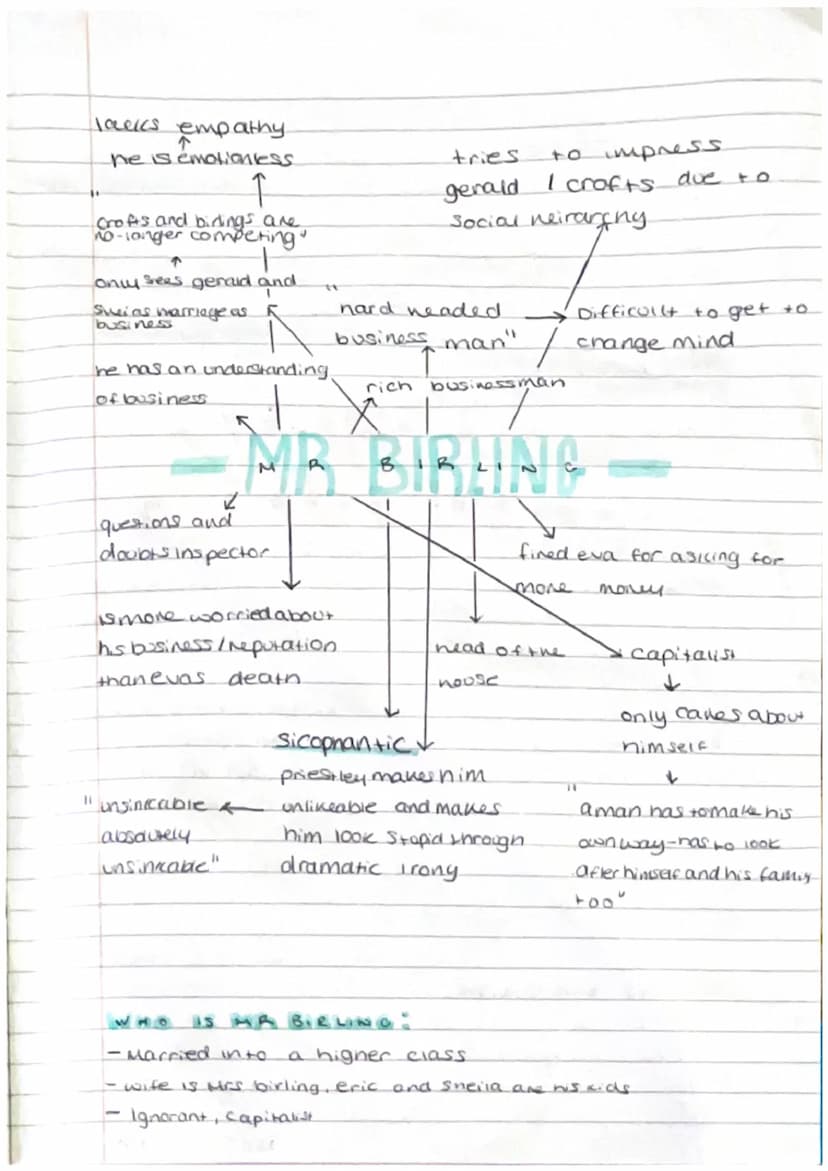 lacks empathy
he is emotionless
tries to impress
gerald / crofts due to
social heirarchy
"
crofts and birlings are
no-longer competing"
only sees gerald and
sheias marriage as
business
"
hard headed
business man"
Difficult to get to
change mind
he has an understanding
of business
rich businessman
MR BIRLING
questions and
doubts inspector
fired eva for asking for
more money
is more worried about
his business/reputation
than evas death
head of the
house
capitalist
only cares about
himself
sicophantic
priestley makes him
unlikeable and makes
him look stupid through
dramatic irony
"unsinkable
absolutely
unsinkable"
"
a man has to make his
own way-has to look
after himself and his family
too"
WHO IS MR BIRLING:
- Married into a higher class
- wife is Mrs birling, eric and sheila are his kids
- Ignorant, capitalist